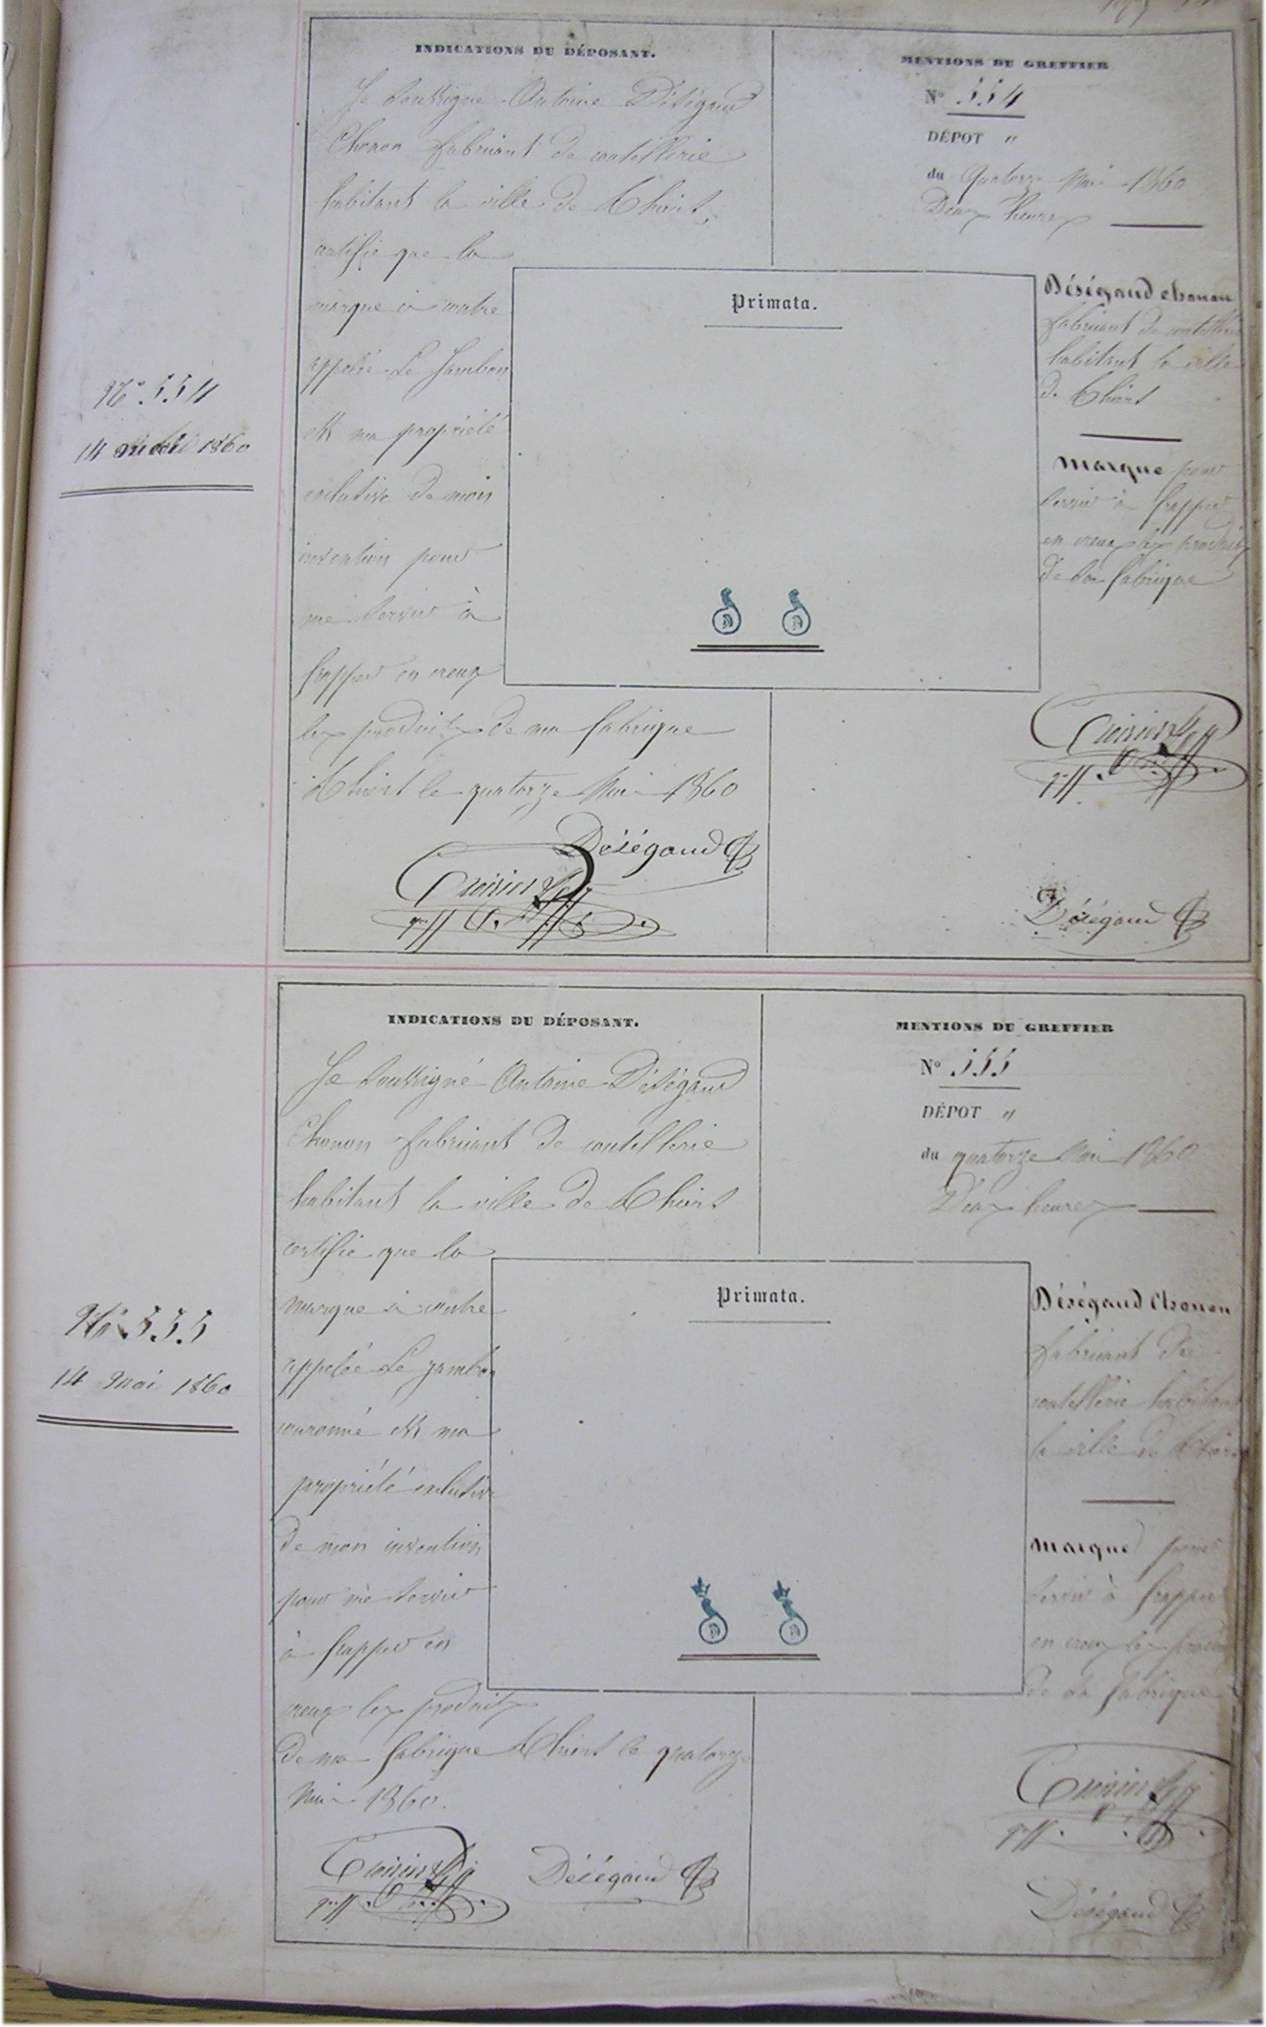 N° 554
14 mai 1860
INDICATIONS DU DÉPOSANT.
Je soussigné Antoine Déségaud
Chonon fabricant de coutellerie
habitant la ville de Thiers
certifie que la
marque ci contre
appelée Le Jambon
est ma propriété
exclusive de mon
invention pour
me servir à
frapper en creux
les produits de ma fabrique
Thiers le quatorze Mai 1860
Déségaud
MENTIONS DU GREFFIER
N° 554
DÉPOT "
du quatorze Mai 1860
Deux heures
Primata.
D D
Déségaud chonon
fabricant de coutellerie
habitant la ville
de Thiers
Marque pour
servir à frapper
en creux les produits
de sa fabrique
Déségaud
N° 555
14 mai 1860
INDICATIONS DU DÉPOSANT.
Je soussigné Antoine Déségaud
Chonon fabricant de coutellerie
habitant la ville de Thiers
certifie que la
marque ci contre
appelée Le jambon
couronné est ma
propriété exclusive
de mon invention
pour me servir
à frapper en
creux les produits
de ma fabrique Thiers le quatorze
Mai 1860.
Déségaud
MENTIONS DU GREFFIER
N° 555
DÉPOT "
du quatorze Mai 1860
Deux heures
Primata.
D D
Déségaud Chonon
fabricant de
coutellerie habitant
la ville de Thiers
Marque pour
servir à frapper
en creux les produits
de sa fabrique
Déségaud